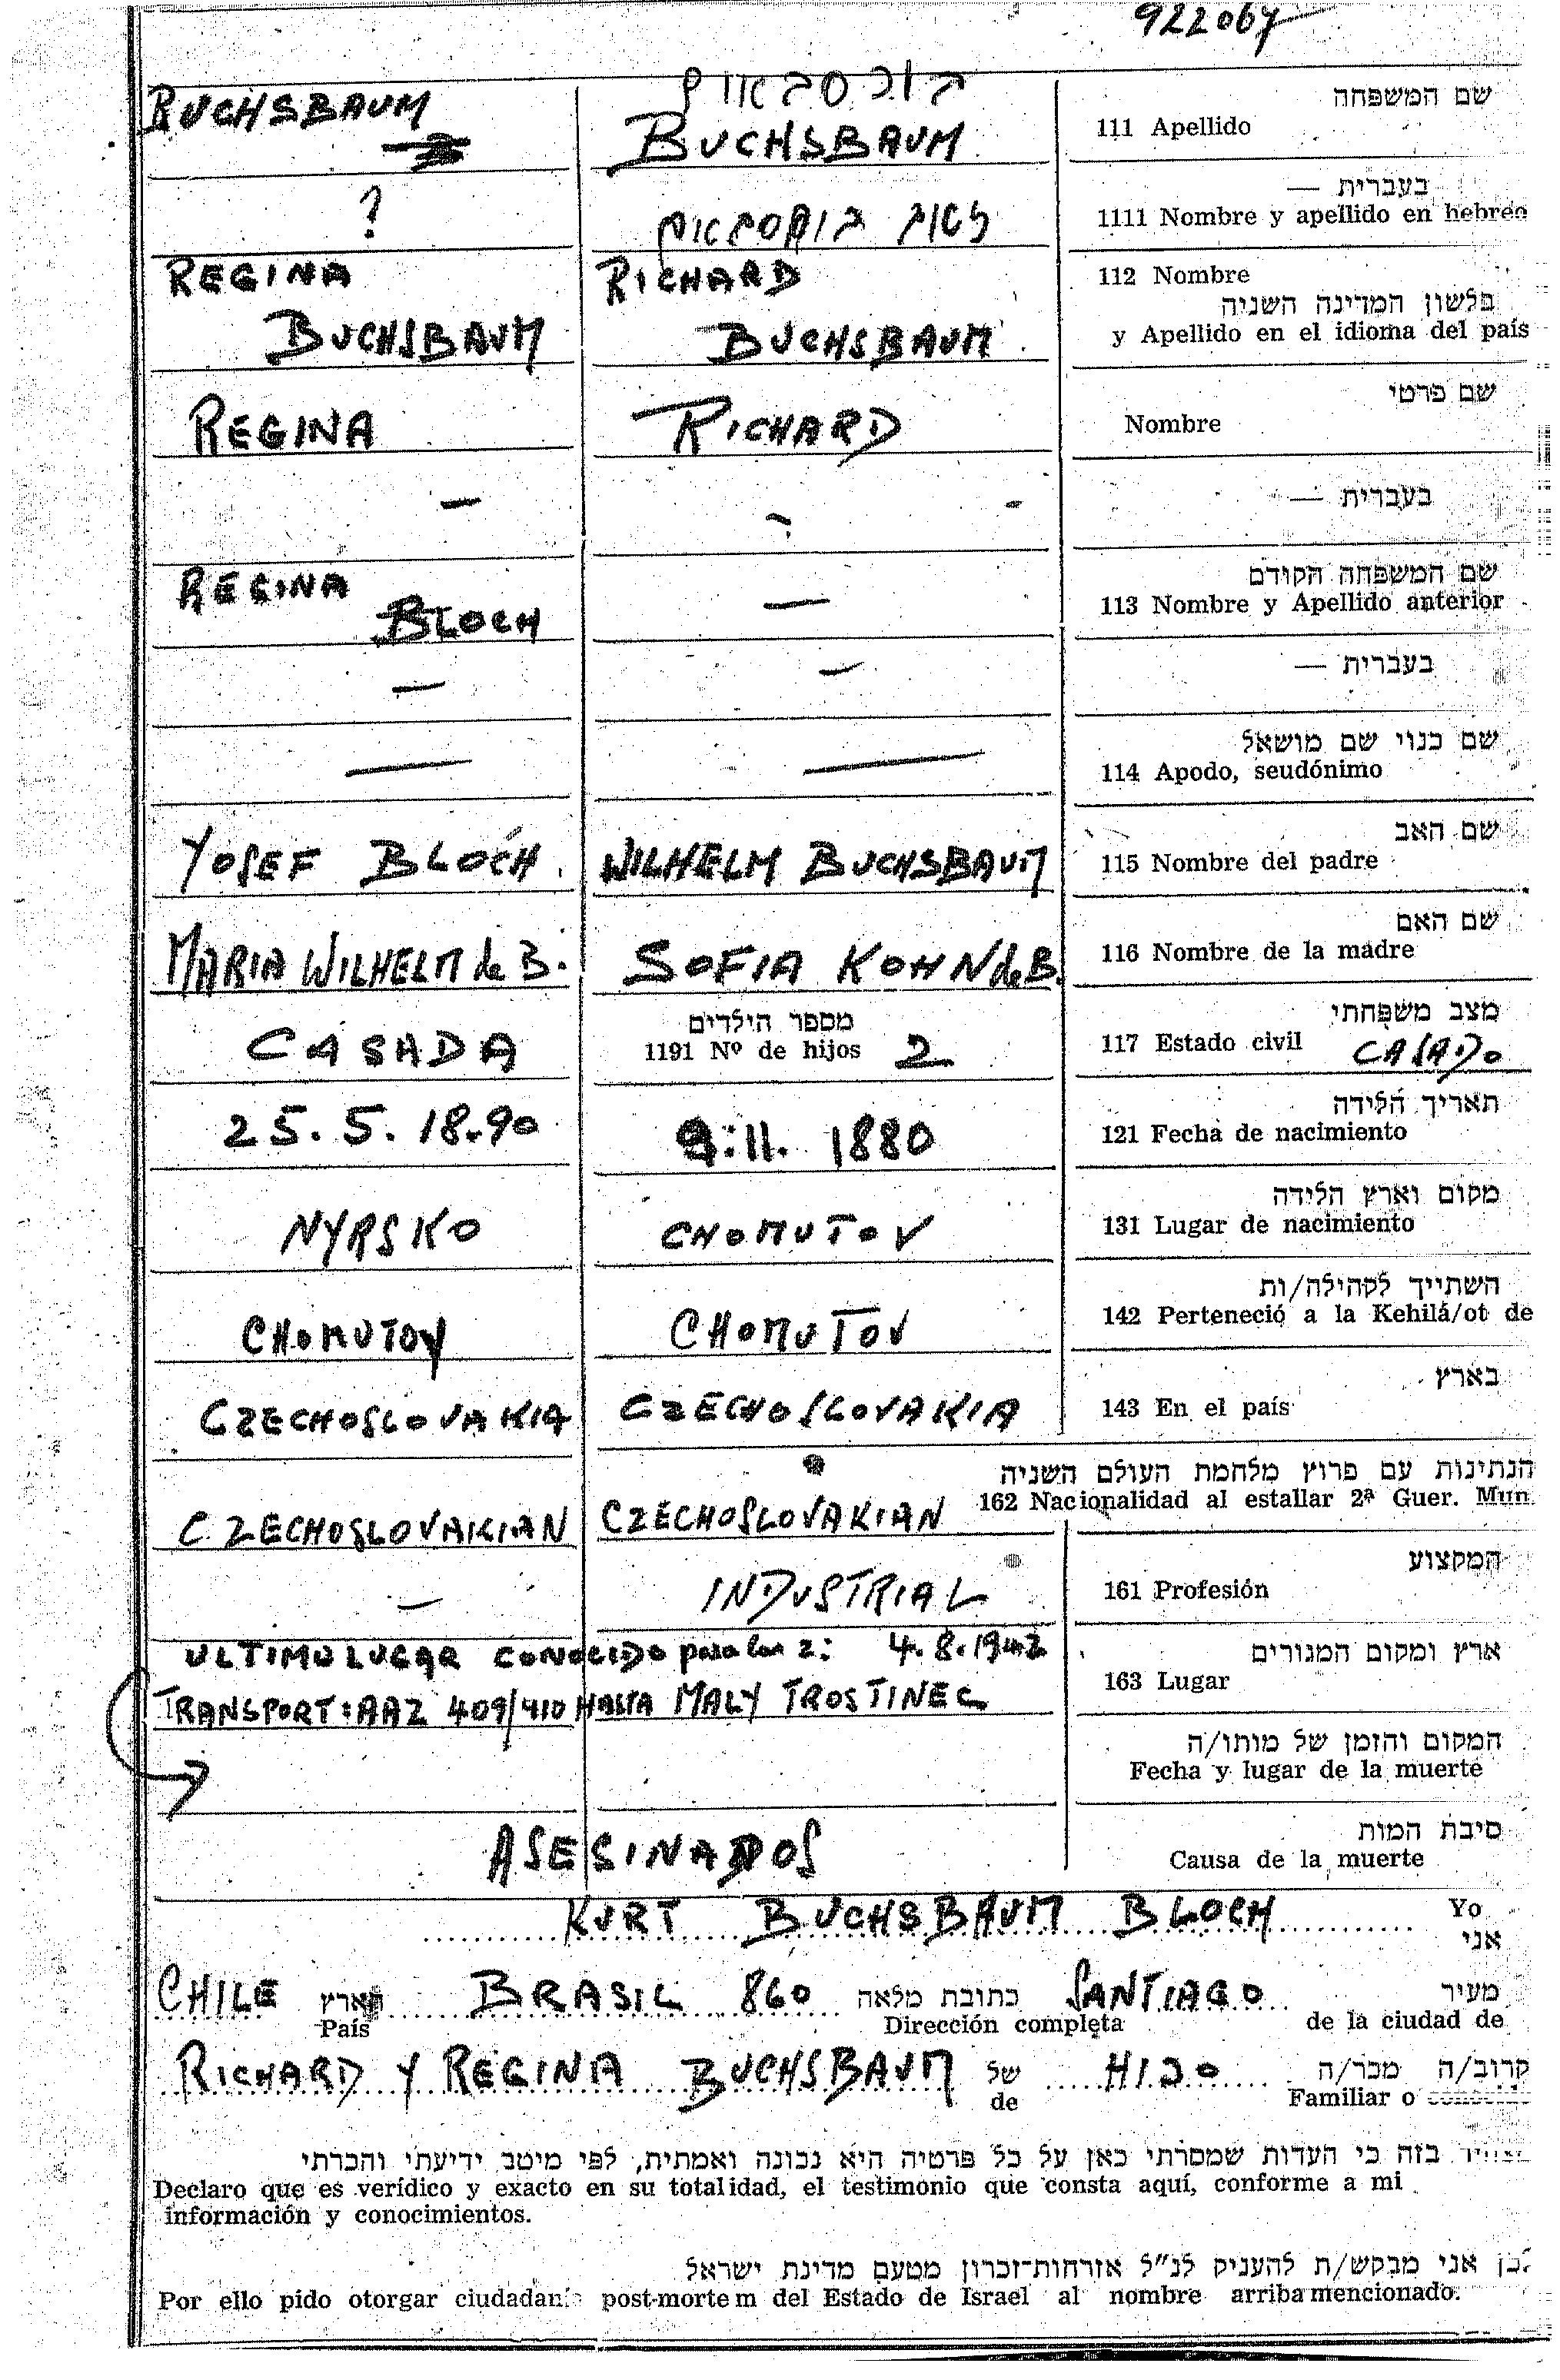 922067
שם המשפחה
111 Apellido
בוכסבאום
BUCHSBAUM
BUCHSBAUM
בעברית —
1111 Nombre y apellido en hebreo
?
112 Nombre
בלשון המדינה השניה
y Apellido en el idioma del país
RICHARD
BUCHSBAUM
REGINA
BUCHSBAUM
שם פרטי
Nombre
RICHARD
REGINA
בעברית —
— — -
שם המשפחה הקודם
113 Nombre y Apellido anterior
—
REGINA
BLOCH
בעברית —
— —
שם כנוי שם מושאל
114 Apodo, seudónimo
— —
שם האב
115 Nombre del padre
WILHELM BUCHSBAUM
YOSEF BLOCH
שם האם
116 Nombre de la madre
SOFIA KOHN de B.
MARIA WILHELM de B.
מצב משפחתי
117 Estado civil CASADO
מספר הילדים
1191 Nº de hijos 2
CASADA
תאריך הלידה
121 Fecha de nacimiento
9.11. 1880
25.5.18.90
מקום וארץ הלידה
131 Lugar de nacimiento
CHOMUTOV
NYRSKO
השתייך לקהילה/ות
142 Perteneció a la Kehilá/ot de
CHOMUTOV
CHOMUTOV
בארץ
143 En el país
CZECHOSLOVAKIA
CZECHOSLOVAKIA
הנתינות עם פרוץ מלחמת העולם השניה
162 Nacionalidad al estallar 2ª Guer. Mun.
CZECHOSLOVAKIAN
CZECHOSLOVAKIAN
המקצוע
161 Profesión
INDUSTRIAL
—
ארץ ומקום המגורים
163 Lugar
ULTIMO LUGAR CONOCIDO para los 2: 4.8.1942
TRANSPORT: AAZ 409/410 HASTA MALY TROSTINEC
המקום והזמן של מותו/ה
Fecha y lugar de la muerte
סיבת המות
Causa de la muerte
ASESINADOS
Yo
אני
KURT BUCHSBAUM BLOCH
מעיר
de la ciudad de
SANTIAGO
כתובת מלאה
Dirección completa
BRASIL 860
הארץ
País
CHILE
קרוב/ה מכר/ה
Familiar o
HIJO
של
de
RICHARD Y REGINA BUCHSBAUM
בזה כי העדות שמסרתי כאן על כל פרטיה היא נכונה ואמתית, לפי מיטב ידיעתי והכרתי
Declaro que es verídico y exacto en su totalidad, el testimonio que consta aquí, conforme a mi
información y conocimientos.
לכן אני מבקש/ת להעניק לנ״ל אזרחות־זכרון מטעם מדינת ישראל
Por ello pido otorgar ciudadanía post-mortem del Estado de Israel al nombre arriba mencionado.